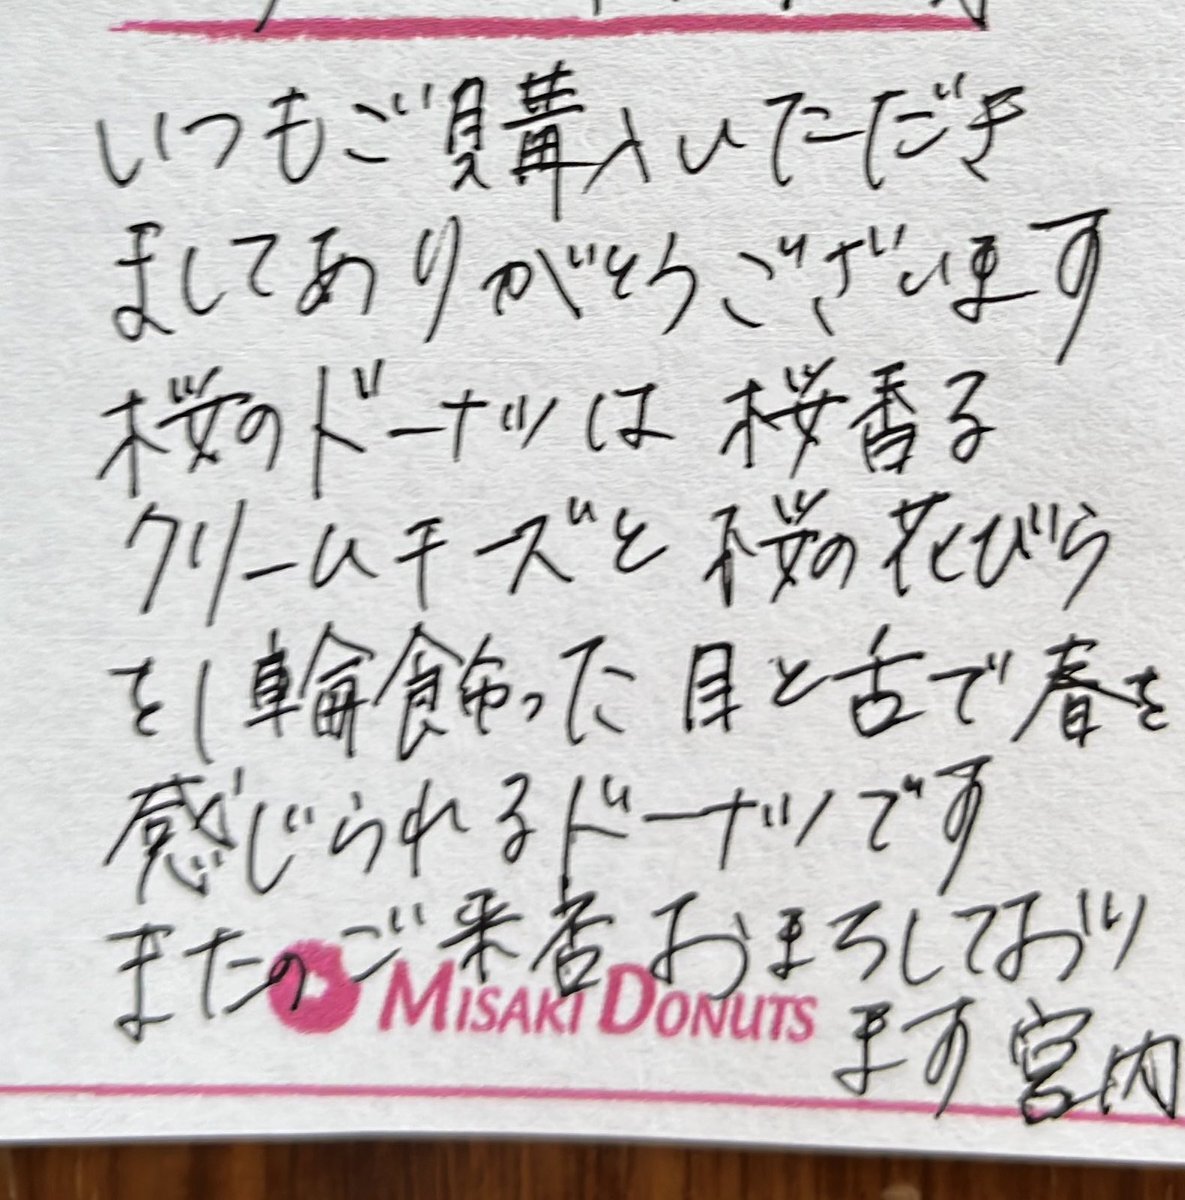 いつもご購入いただき
ましてありがとうございます
桜のドーナツは 桜香る
クリームチーズと桜の花びら
を一輪飾った 目と舌で春を
感じられるドーナツです
またのご来店おまちしており
ます 宮内
MISAKI DONUTS